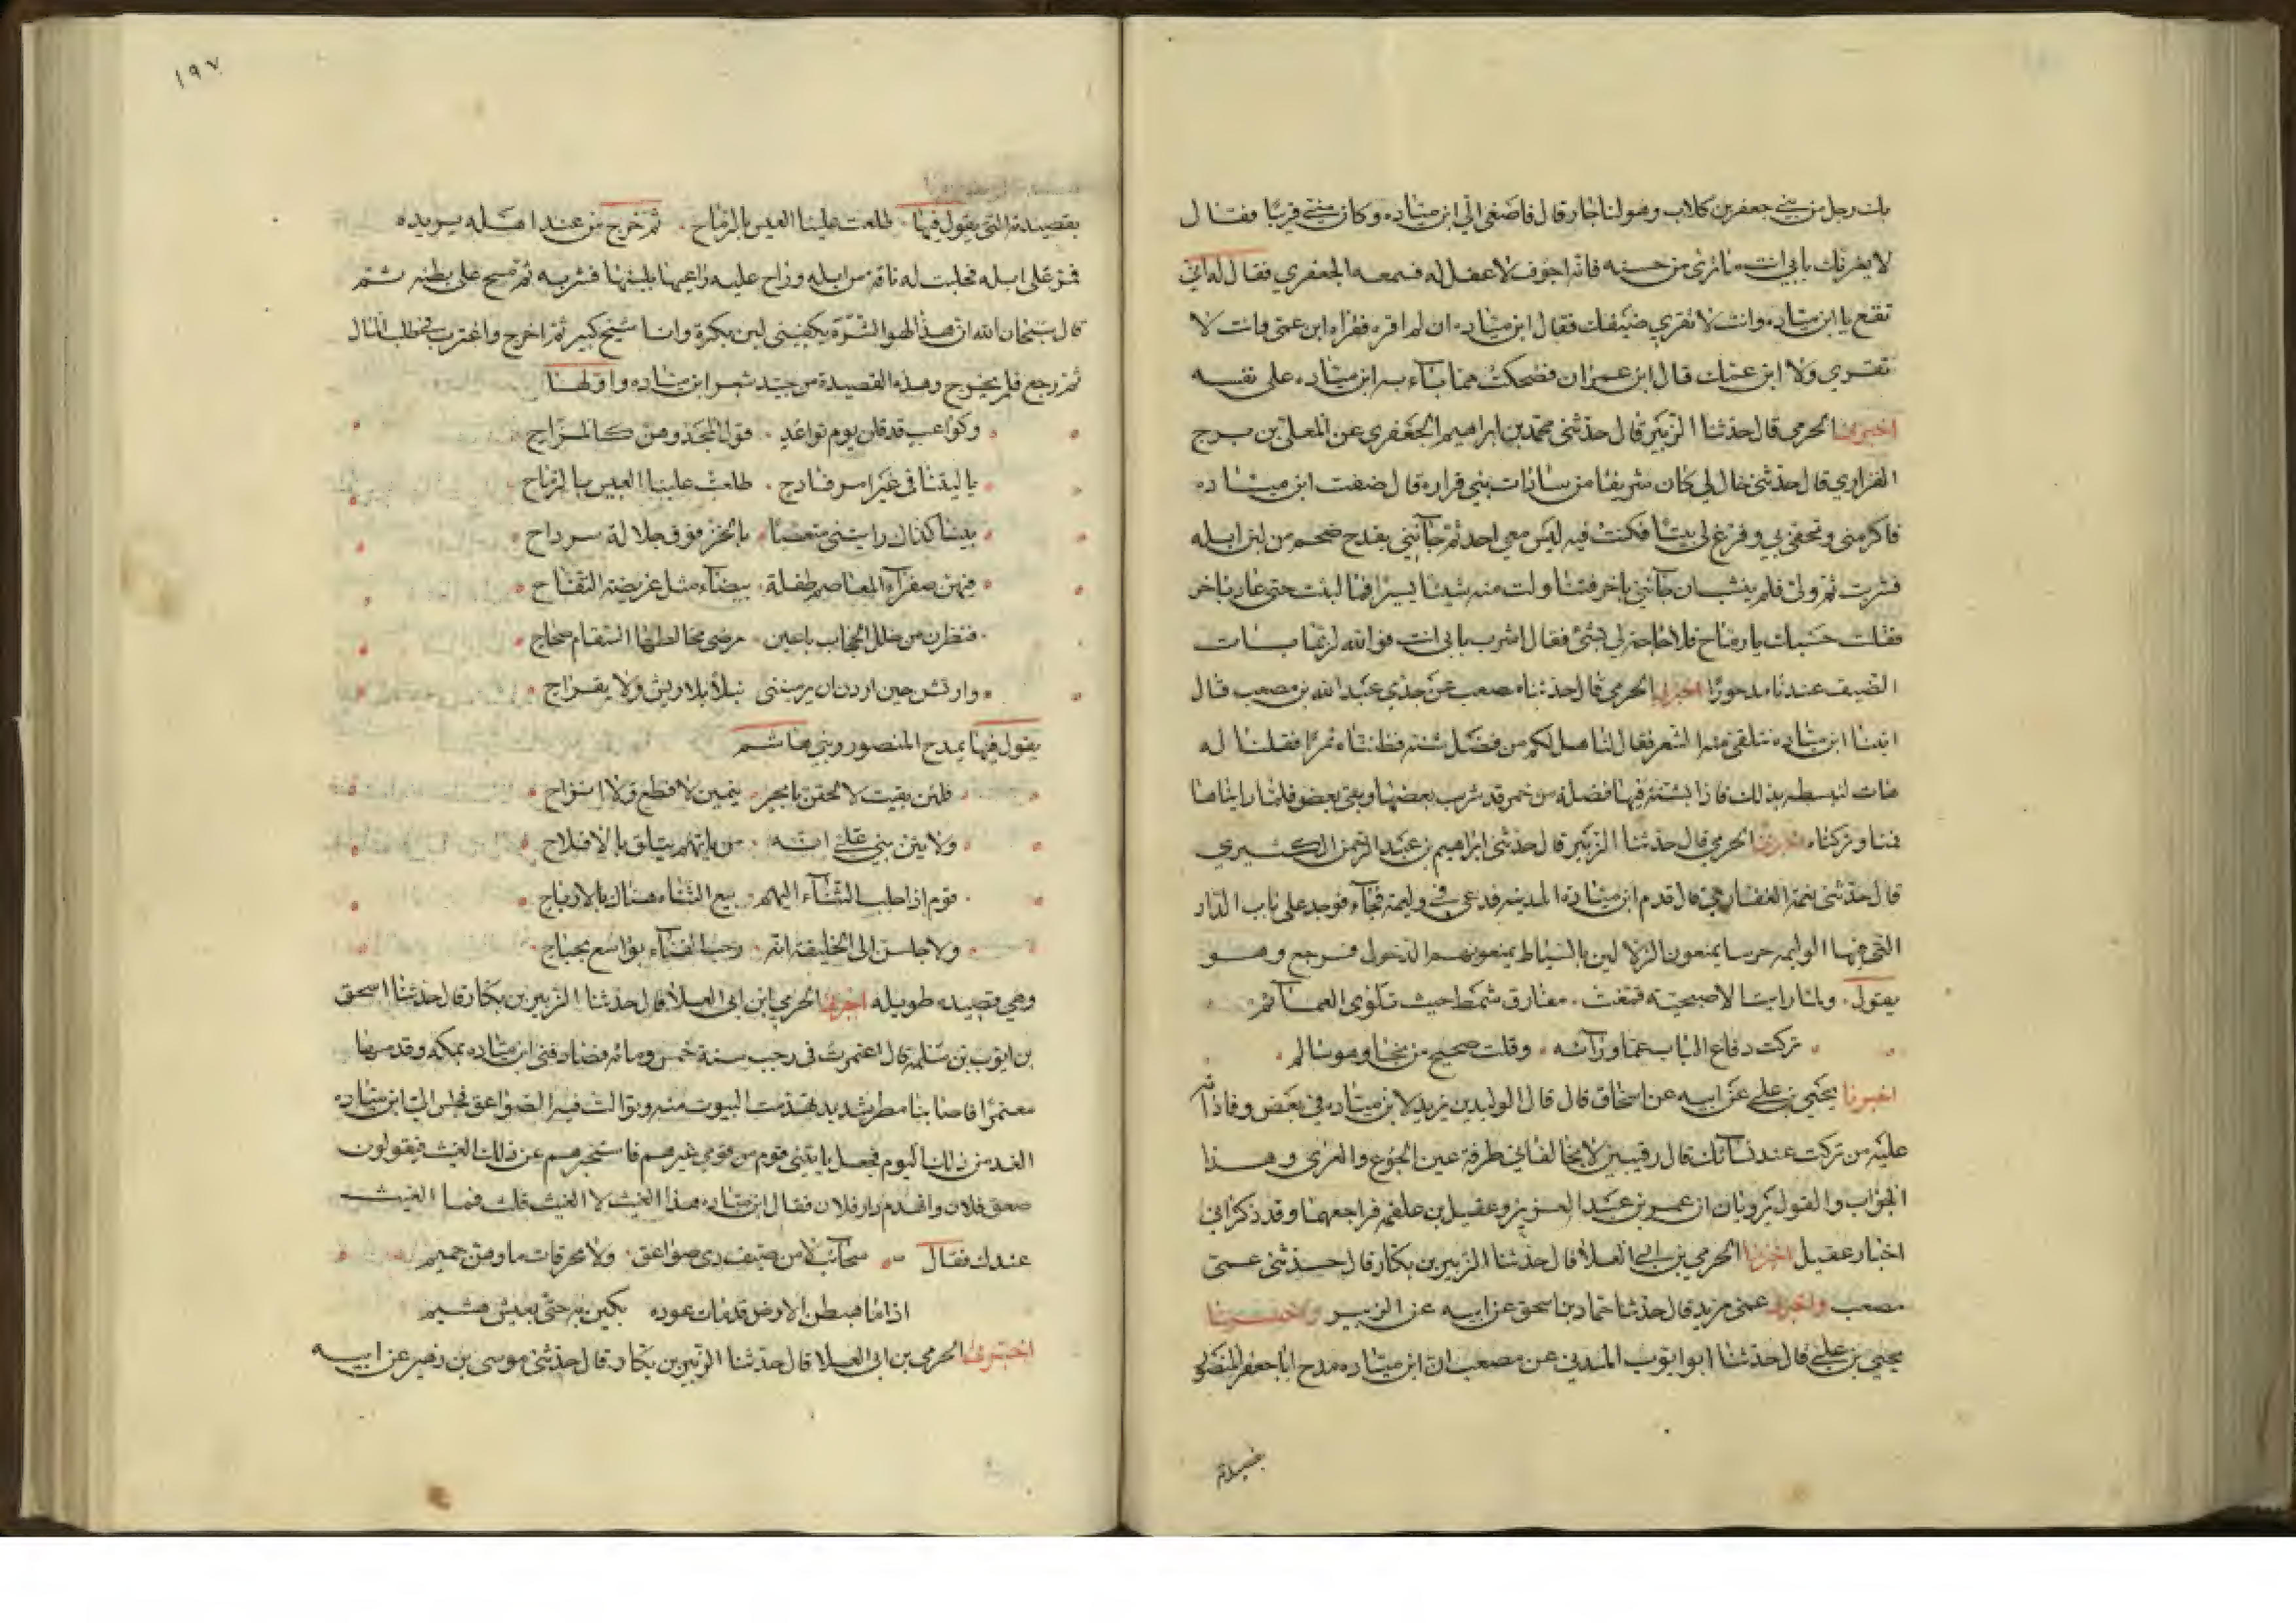 بك رجل من بني جعفر بن كلاب وهو لنا جار قال فاصغى الي ابن ميّاده وكان مني قريبا فقال
لا يغرنك بابي انت ما ترى من حسنه فانه اجوف لا عقل له فسمعه الجعفري فقال له اني
تقع يا ابن ميّاده وانت لا تقري ضيفك فقال ابن ميّاده ان لم اقره فقراه ابن عمي وانت لا
تقري ولا ابن عمك قال ابن عمران فضحكت مما باء به ابن ميّاده على نفسه
اخبرنا الحرمي قال حدثنا الزبير قال حدثني محمد بن ابراهيم الجعفري عن المعلى بن برج
الفزاري قال حدثني خال لي كان شريفا من سادات بني فزارة قال ضفت ابن ميّاده
فاكرمني وتحفى بي وفرغ لي بيتا فكنت فيه ليس معي احد ثم جآنني بقدح ضخم من لبن ابله
فشربت ثم ولى فلم ينشب ان جآنني باخر فتناولت منه شيئا يسيرا فما لبثت حتى عاد باخر
فقلت حسبك يا رماح فلا حاجة لي بشئ فقال اشرب بابي انت فوالله لربما بات
الضيف عندنا مدحورا اخبرني الحرمي قال حدثنا مصعب عن جدي عبد الله بن مصعب قال
اتينا ابن ميّاده نتلقى منه الشعر فقال لنا هل لكم من فضل شنه فظنناه تمرا فقلنا له
هات لنبسطه بذلك فاذا شنه فيها فضلة من خمر قد شرب بعضها وبقي بعض فلما رايناها
قمنا وتركناه اخبرنا الحرمي قال حدثنا الزبير قال حدثني ابراهيم بن عبد الرحمن الكثيري
قال حدثني نعمة الغفاري قال قدم ابن ميّادة المدينه فدعي في وليمة فجآء فوجد على باب الدار
التي فيها الوليمه حرسا يمنعون الزلالين بالسياط يمنعونهم الدخول فرجع وهو
يقول ولما رايت الاصبحية قنعت مفارق شمط حيث تلوى العمآئم
تركت دفاع الباب عما ورآئه وقلت صحيح من نجا وهو سالم
اخبرنا يحيى بن علي عن ابيه عن اسحاق قال قال الوليد بن يزيد لابن ميّاده في بعض وفاداته
عليه من تركت عند نسآئك قال رقيبين لا يخالفاني طرفة عين الجوع والعرى وهذا
الجواب والقول يرويان ان عمر بن عبد العزيز وعقيل بن علفه تراجعهما وقد ذكرا في
اخبار عقيل اخبرنا الحرمي بن ابي العلا قال حدثنا الزبير بن بكار قال حدثني عمي
مصعب واخبرنا محمد بن مزيد قال حدثنا حماد بن اسحق عن ابيه عن الزبير واخبرنا
يحيى بن علي قال حدثنا ابو ايوب المديني عن مصعب ان ابن ميّاده مدح ابا جعفر المنصور
بقصيدته
١٩٧
بقصيدته التي يقول فيها طلعت علينا العيس بالرماح ثم خرج من عند اهله يريده
فمر على ابله فحلبت له ناقة من ابله وراح عليه راعيها بلبنها فشربه ثم مسح على بطنه ثم
قال سبحان الله ان هذا لهو الشره يكفيني لبن بكرة وانا شيخ كبير ثم اخرج واغترب في طلب المال
ثم رجع فلم يخرج وهذه القصيدة من جيد شعر ابن ميّاده واولها
وكواعب قد قلن يوم تواعد قول المجد وهن كالمزاح
يا ليتنا في غير امر فادح طلعت علينا العيس بالرماح
بينا كذاك رايتني متعصبا بالخز فوق جلالة سرداح
فيهن صفرآء المعاصم طفلة بيضآء مثل غريضة التفاح
فنظرن من خلل الحجاب باعين مرضى مخالطها السقام صحاح
وارتشن حين اردن ان يرميننى نبلا بلا ريش ولا بقداح
يقول فيها يمدح المنصور وبني هاشم
فلئن بقيت لالحقن بابحر ينمين لا قطع ولا انزاح
ولاتين بني علي انه من ياتهم يتلق بالافلاح
قوم اذا جلب الثنآء اليهم بيع الثنآء هناك بالارباح
ولاجلسن الى الخليفه انه رحب الفنآء بواسع بحباح
وهي قصيده طويله اخبرنا الحرمي ابن ابي العلا قال حدثنا الزبير بن بكار قال حدثنا اسحق
بن ايوب بن سلمة قال اعتمرت في رجب سنة خمس ومائه فصادفني ابن ميّاده بمكة وقدمها
معتمرا فاصابنا مطر شديد تهدمت البيوت منه وتوالت فيه الصواعق فجلس الي ابن ميّاده
الغد من ذلك اليوم فجعل ياتيني قوم من قومي غيرهم فاستخبرهم عن ذلك الغيث فيقولون
صعق فلان وانهدم دار فلان فقال ابن ميّاده هذا العيث لا الغيث قلت فما الغيث
عندك فقال سحآئب لا من صيف ذى صواعق ولا محرقات ماوهن حميم
اذا ما هبطن الارض قد مات عوده بكين به حتى يعيش هشيم
اخبرنا الحرمي بن ابي العلا قال حدثنا الزبير بن بكار قال حدثني موسى بن زهير عن ابيه